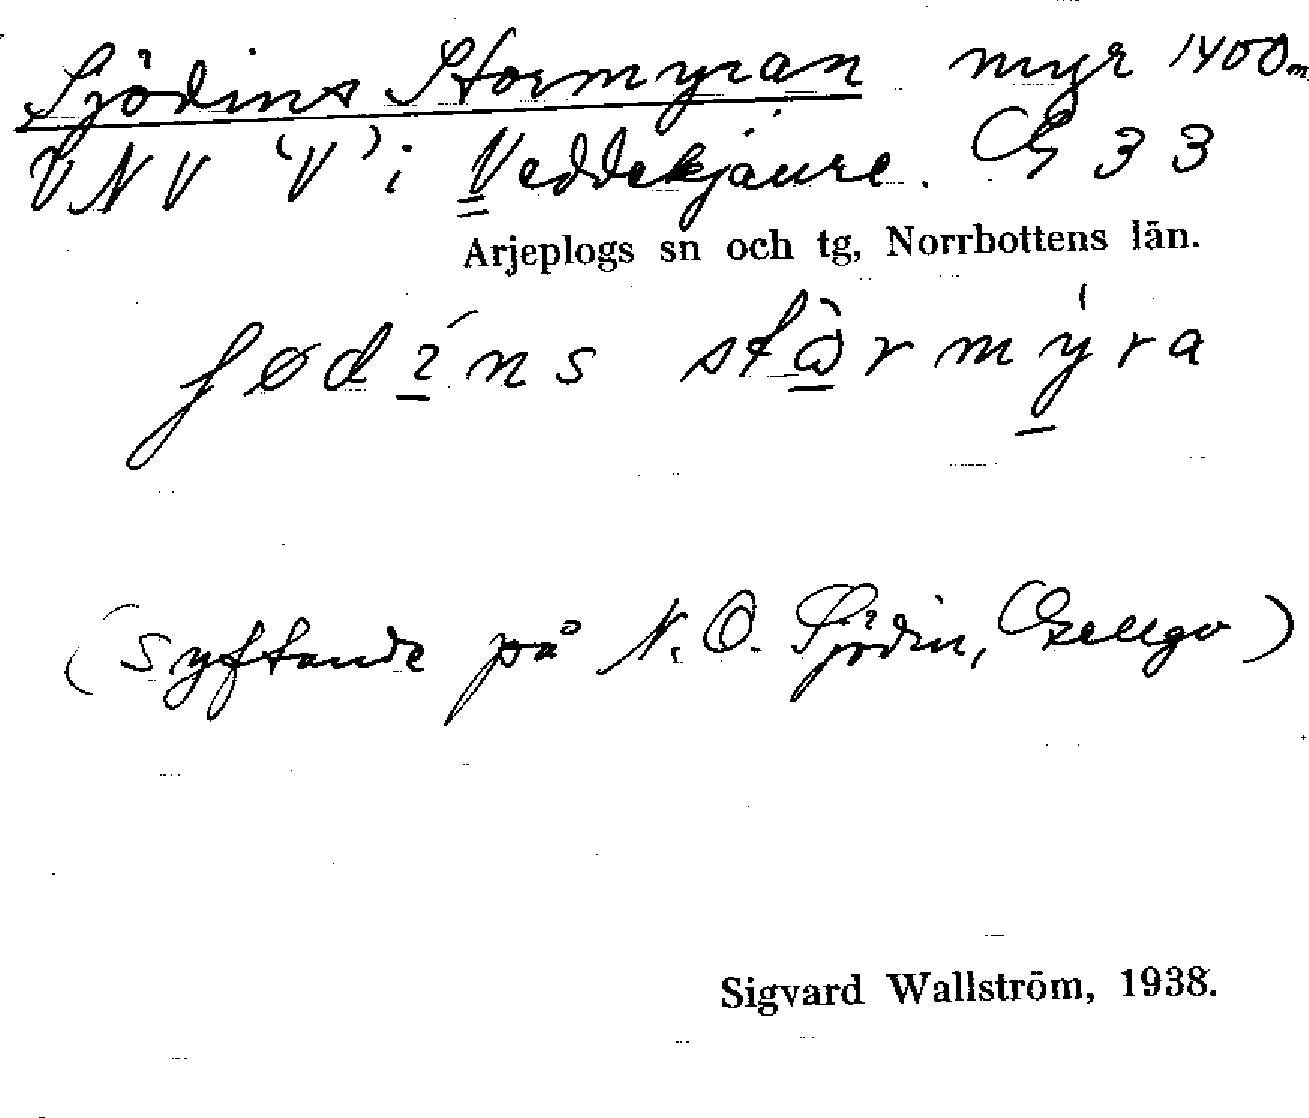 Sjödins Stormyran myr 1400 m
VNV 'V' i Veddekjaure. G 33
Arjeplogs sn och tg, Norrbottens län.
(syftande på N. O. Sjödin,
Sigvard Wallström, 1938.